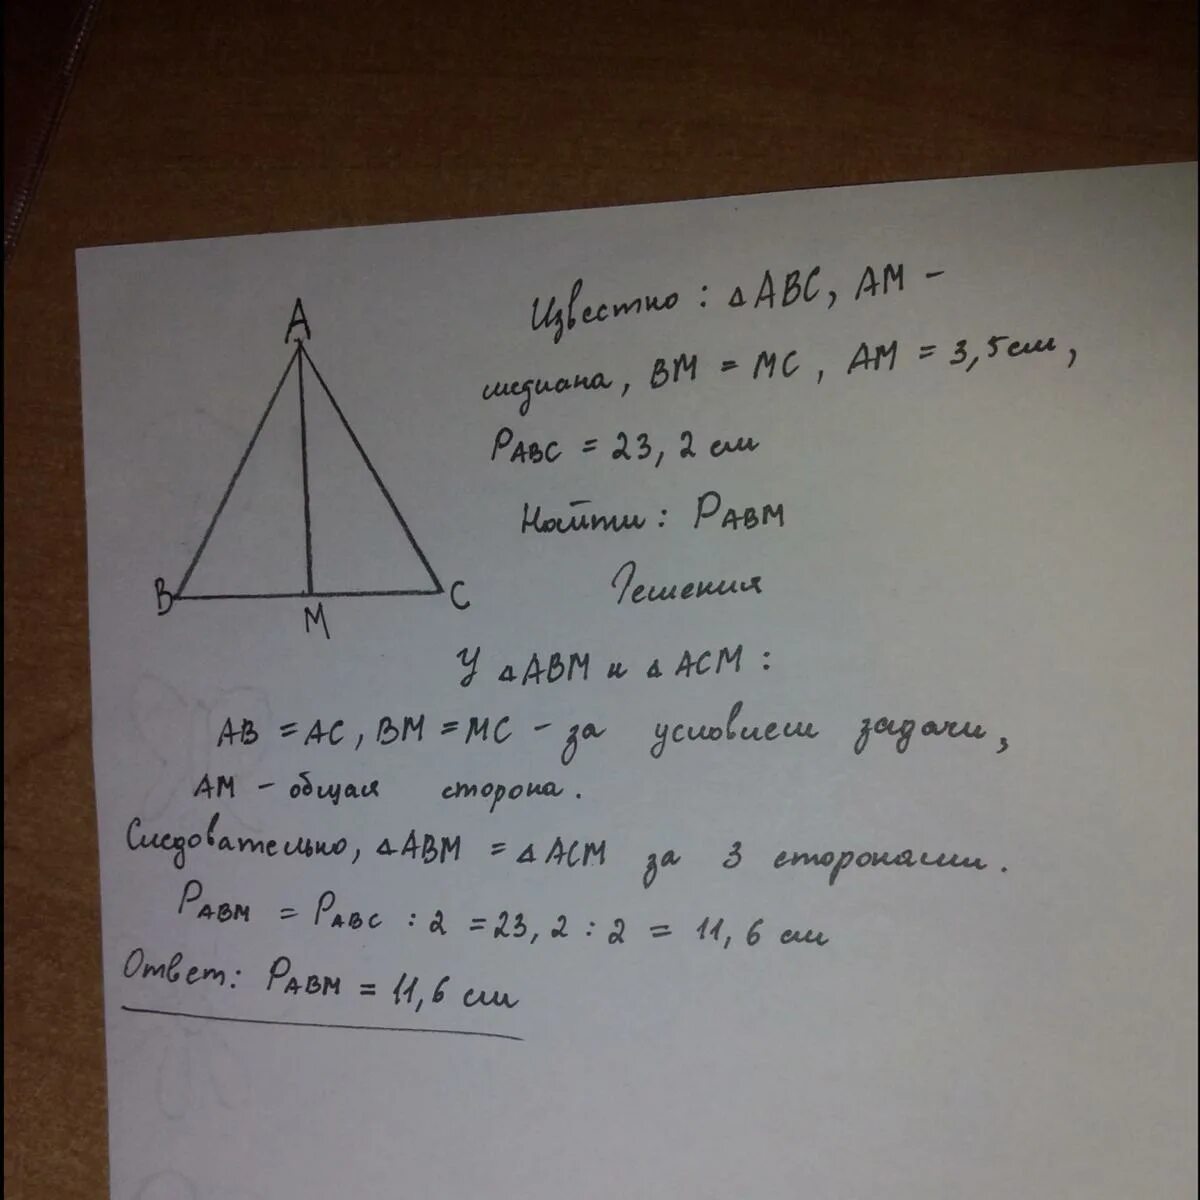 A
B
M
C
Известно: △ABC, AM -
медиана, BM = MC, AM = 3,5 см,
PABC = 23,2 см
Найти: PABM
Решения
У △ABM и △ACM:
AB = AC, BM = MC - за условием задачи,
AM - общая сторона.
Следовательно, △ABM = △ACM за 3 сторонами.
PABM = PABC : 2 = 23,2 : 2 = 11,6 см
Ответ: PABM = 11,6 см